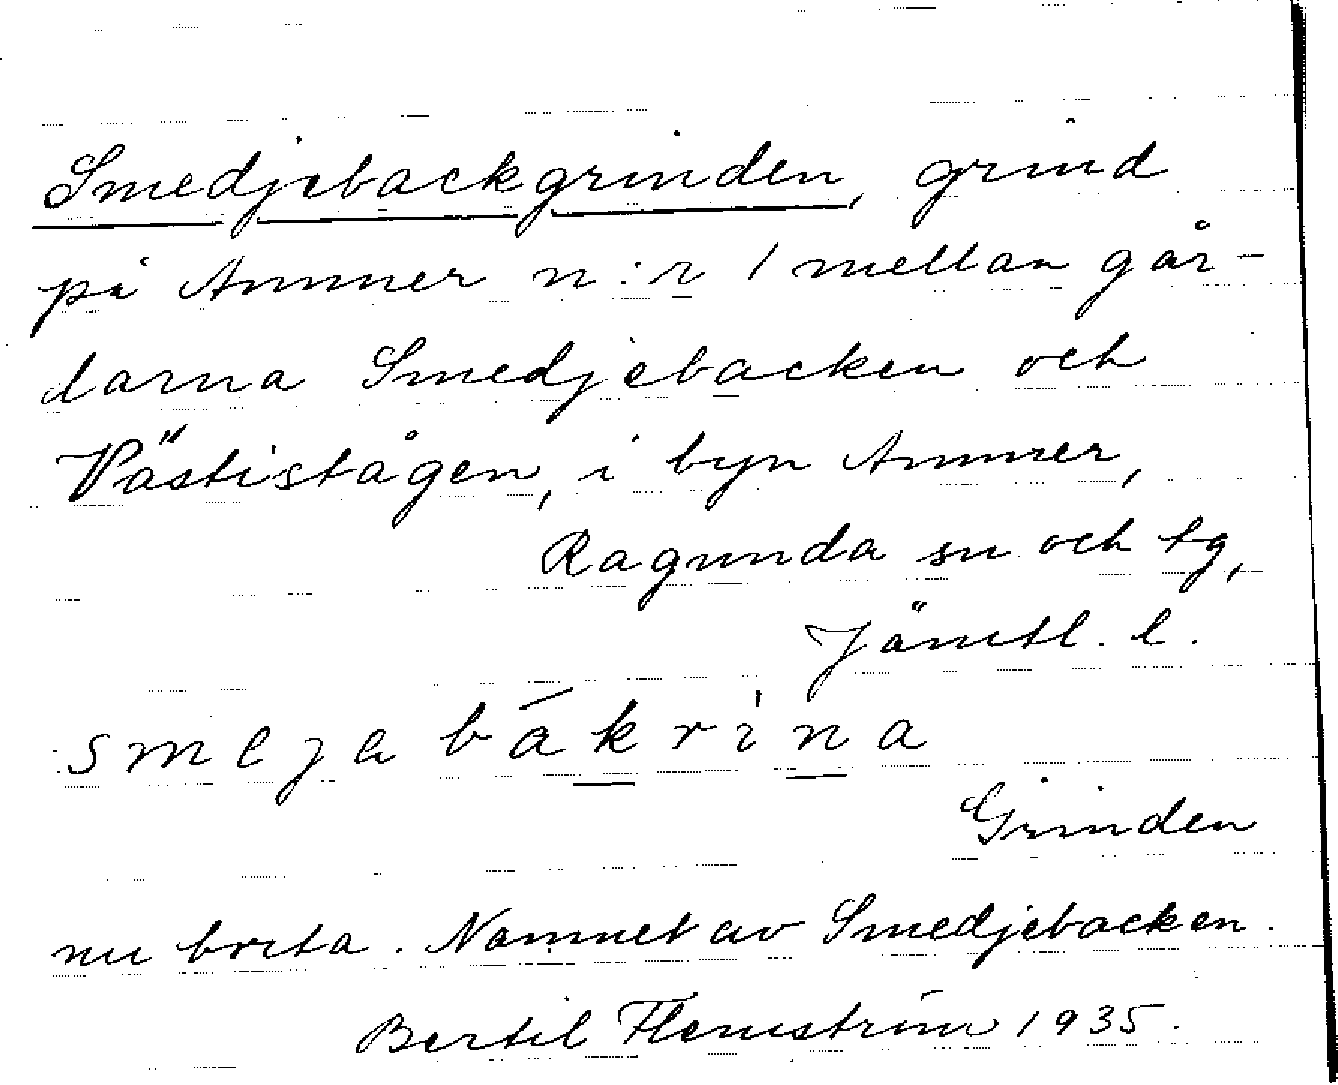 Smedjebackgrinden, grind
på Ammer n:r 1 mellan går-
darna Smedjebacken och
Västistågen, i byn Ammer,
Ragunda sn och tg,
Jämtl. l.
smejabákrina
Grinden
nu borta. Namnet av Smedjebacken.
Bertil Flemström 1935.